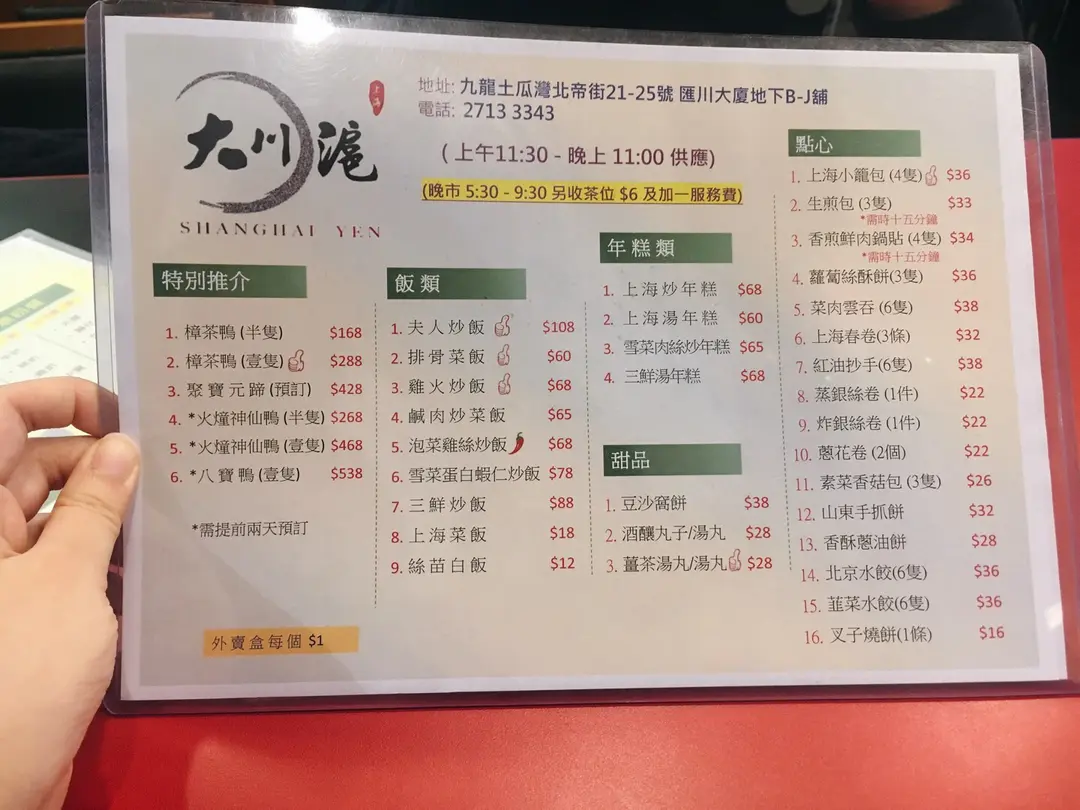 大川滬
上海
SHANGHAI YEN
地址: 九龍土瓜灣北帝街21-25號 匯川大廈地下B-J舖
電話: 2713 3343
( 上午11:30 - 晚上 11:00 供應)
(晚市 5:30 - 9:30 另收茶位 $6 及加一服務費)
特別推介
1. 樟茶鴨 (半隻) $168
2. 樟茶鴨 (壹隻) $288
3. 聚寶元蹄 (預訂) $428
4. *火瞳神仙鴨 (半隻) $268
5. *火瞳神仙鴨 (壹隻) $468
6. *八寶鴨 (壹隻) $538
*需提前兩天預訂
外賣盒每個 $1
飯類
1. 夫人炒飯 $108
2. 排骨菜飯 $60
3. 雞火炒飯 $68
4. 鹹肉炒菜飯 $65
5. 泡菜雞絲炒飯 $68
6. 雪菜蛋白蝦仁炒飯 $78
7. 三鮮炒飯 $88
8. 上海菜飯 $18
9. 絲苗白飯 $12
年糕類
1. 上海炒年糕 $68
2. 上海湯年糕 $60
3. 雪菜肉絲炒年糕 $65
4. 三鮮湯年糕 $68
甜品
1. 豆沙窩餅 $38
2. 酒釀丸子/湯丸 $28
3. 薑茶湯丸/湯丸 $28
點心
1. 上海小籠包 (4隻) $36
2. 生煎包 (3隻) $33
*需時十五分鐘
3. 香煎鮮肉鍋貼 (4隻) $34
*需時十五分鐘
4. 蘿蔔絲酥餅(3隻) $36
5. 菜肉雲吞 (6隻) $38
6. 上海春卷(3條) $32
7. 紅油抄手(6隻) $38
8. 蒸銀絲卷 (1件) $22
9. 炸銀絲卷 (1件) $22
10. 蔥花卷 (2個) $22
11. 素菜香菇包 (3隻) $26
12. 山東手抓餅 $32
13. 香酥蔥油餅 $28
14. 北京水餃(6隻) $36
15. 韮菜水餃(6隻) $36
16. 叉子燒餅(1條) $16